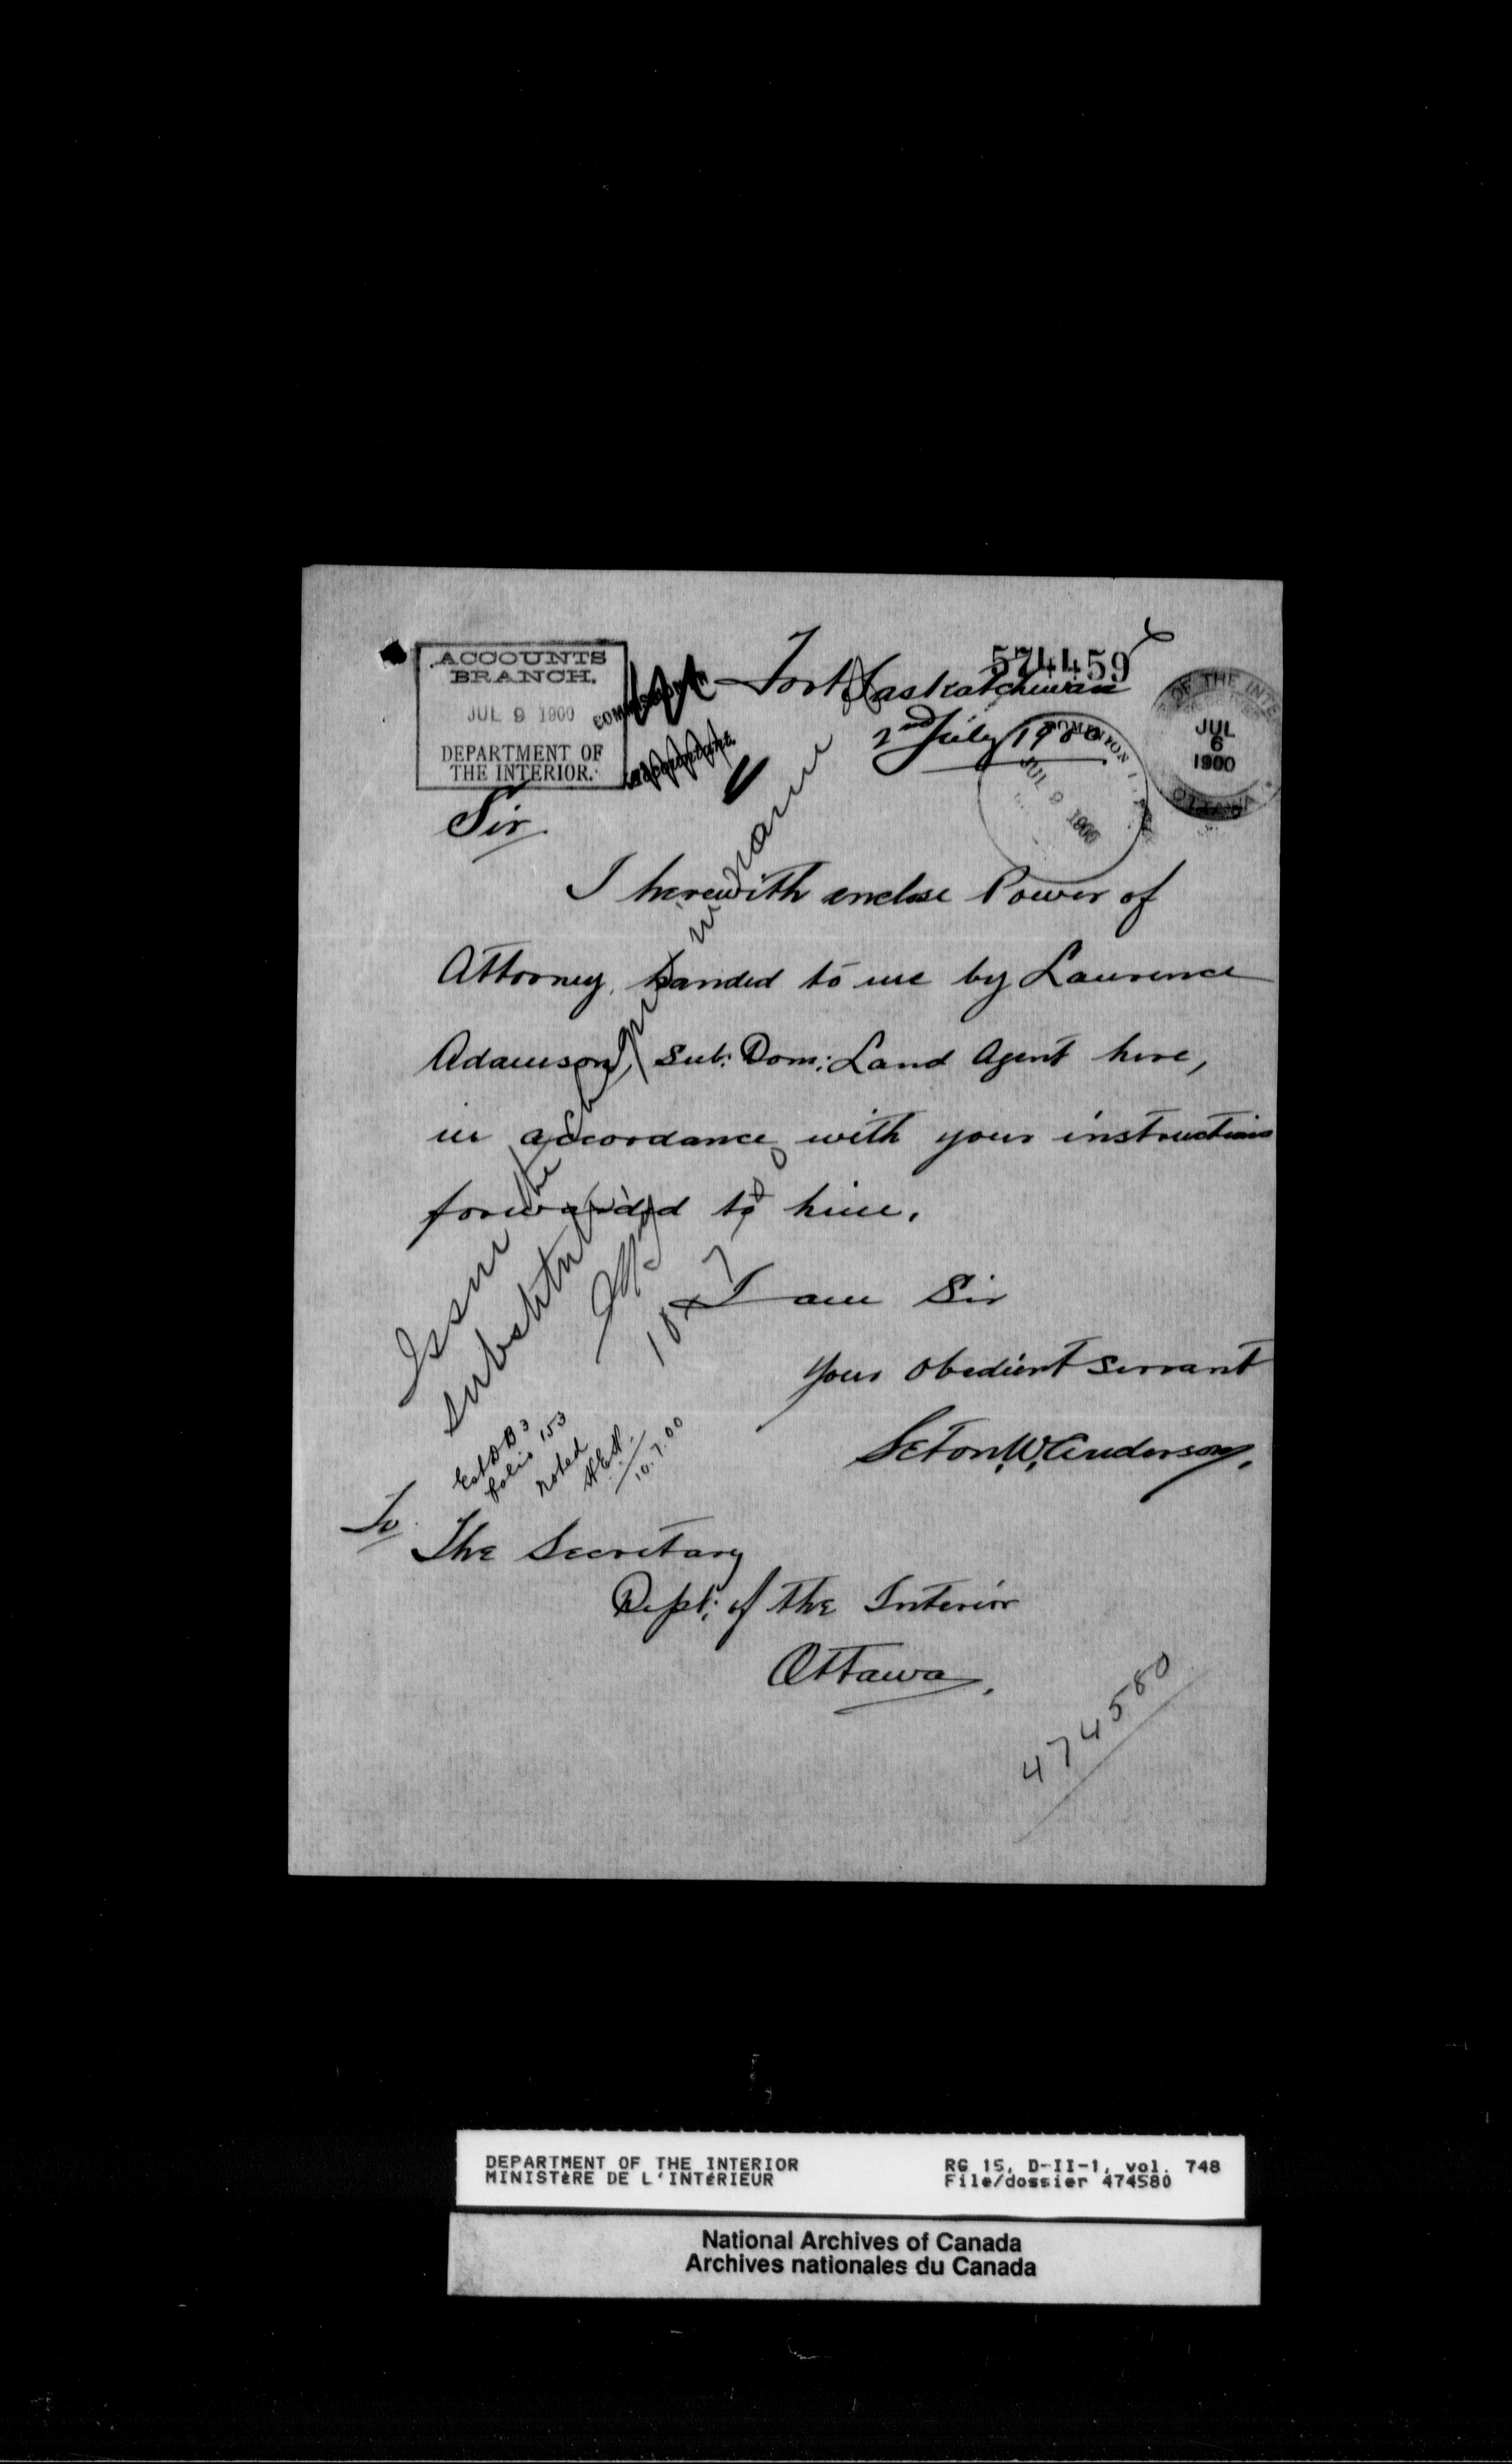 574459
ACCOUNTS
BRANCH.
JUL 9 1900
DEPARTMENT OF
THE INTERIOR.
Fort Saskatchewan
2nd July 1900
OF THE INTE
JUL
6
1900
OTTAWA
DOMINION
JUL 9 1900
Sir.
I herewith enclose Power of
Attorney, handed to me by Laurence
Adamson, Sub: Dom: Land Agent here,
in accordance with your instructions
forwarded to him.
I am Sir
Your obedient servant
Seton W. Anderson.
To
The Secretary
Dept: of the Interior
Ottawa.
Issue the cheque in name
substitute
10 7 00
folio 153
noted
10.7.00
474580
DEPARTMENT OF THE INTERIOR
MINISTÈRE DE L'INTÉRIEUR
RG 15, D-II-1, vol. 748
File/dossier 474580
National Archives of Canada
Archives nationales du Canada